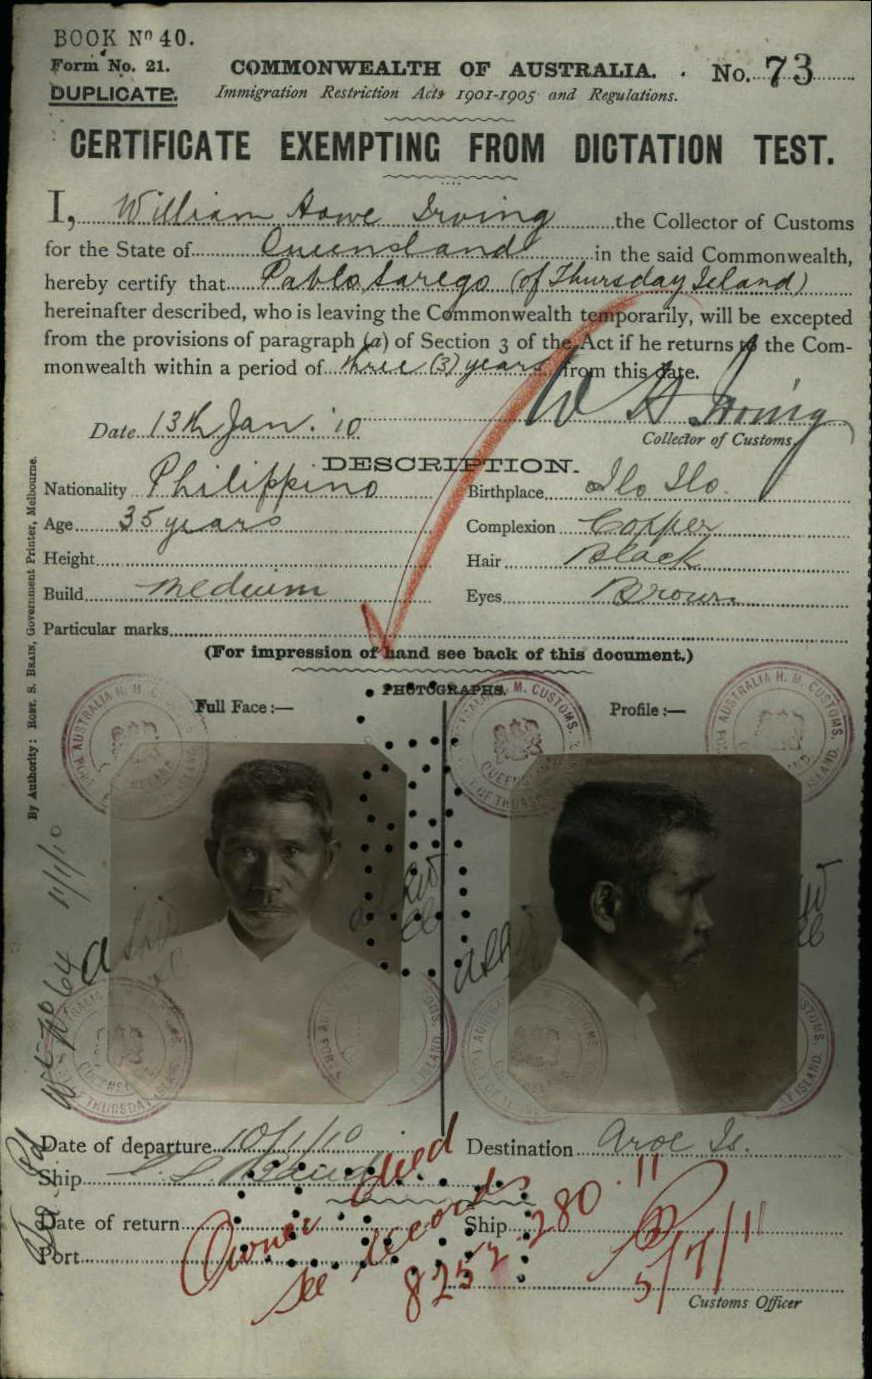 BOOK Nº 40.
Form No. 21.
COMMONWEALTH OF AUSTRALIA.
No. 73
DUPLICATE.
Immigration Restriction Acts 1901-1905 and Regulations.
CERTIFICATE EXEMPTING FROM DICTATION TEST.
I, William Howe Irving the Collector of Customs
for the State of Queensland in the said Commonwealth,
hereby certify that Pablo Sarego (of Thursday Island)
hereinafter described, who is leaving the Commonwealth temporarily, will be excepted
from the provisions of paragraph (a) of Section 3 of the Act if he returns to the Com-
monwealth within a period of three (3) years from this date.
Date 13th Jan. '10
W H Irving
Collector of Customs.
DESCRIPTION.
Nationality Philippino
Birthplace Ilo Ilo.
Age 35 years
Complexion Copper
Height
Hair Black
Build medium
Eyes Brown
Particular marks
(For impression of hand see back of this document.)
PHOTOGRAPHS.
Full Face :—
Profile :—
By Authority: ROBT. S. BRAIN, Government Printer, Melbourne.
11/1/10
Date of departure 10/1/10
Destination Aroe Is.
Ship
Date of return
Ship
Port
Owner died
see records
8252 280.11
5/7/11
Customs Officer